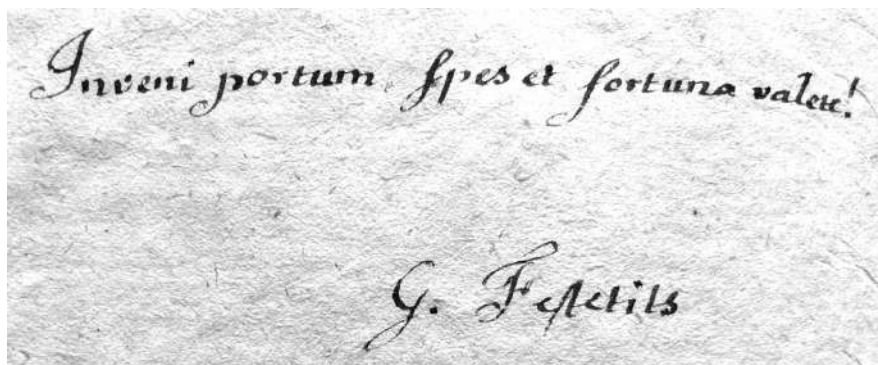 Inveni portum ſpes et fortuna valete!
G. Feſtetits